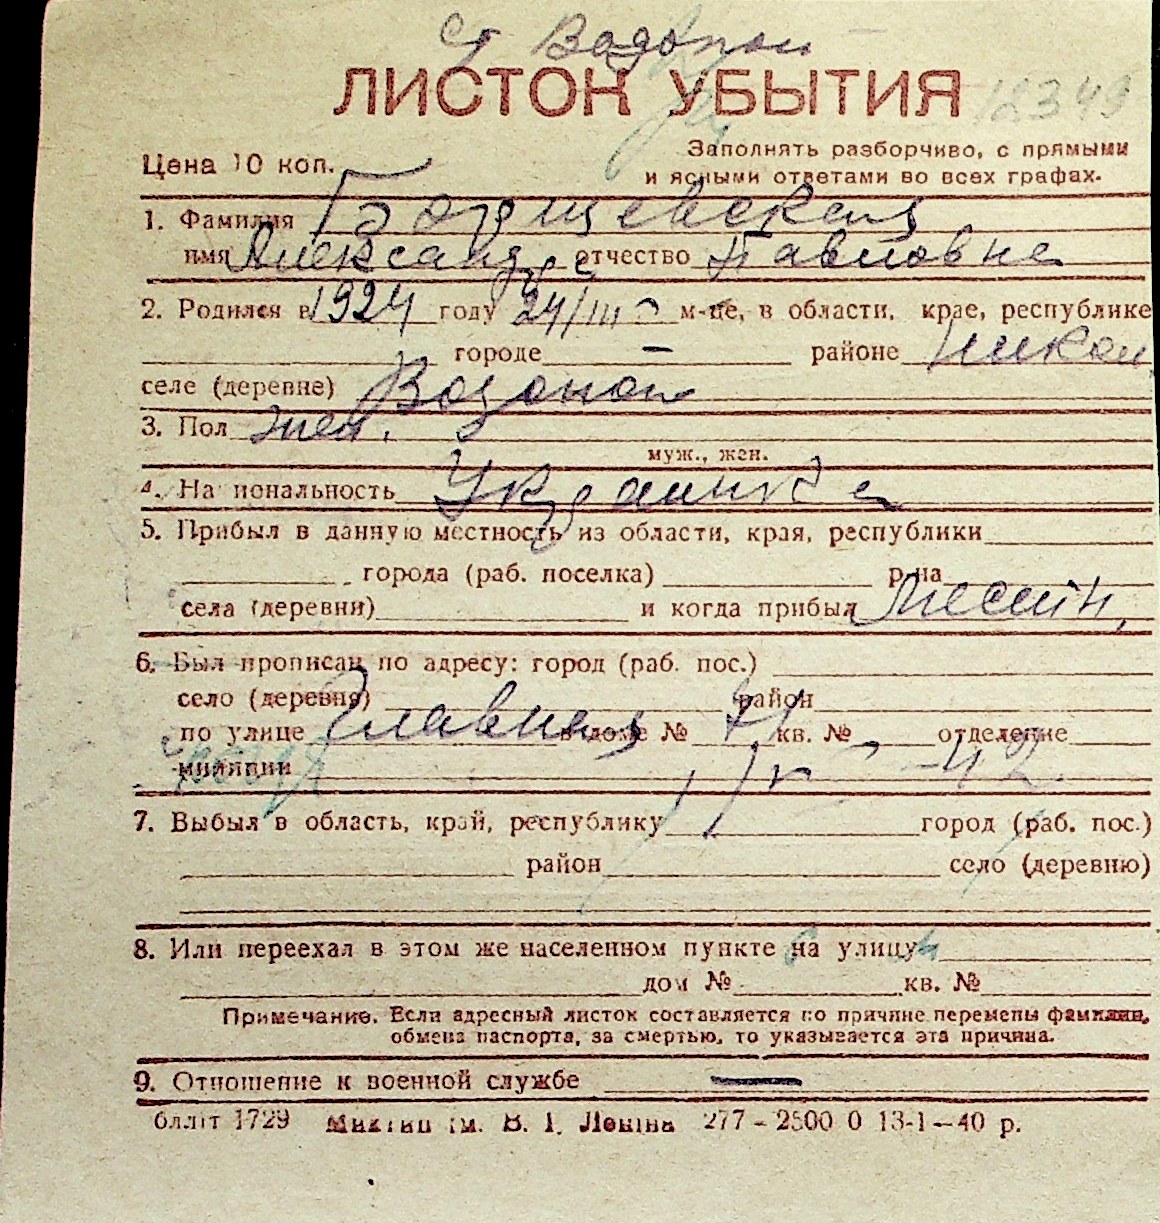 ст Водопой
ЛИСТОК УБЫТИЯ 12349
Заполнять разборчиво, с прямыми
Цена 10 коп. и ясными ответами во всех графах.
1. Фамилия
имя Александра отчество Павловна
2. Родился в 1924 году 24/III м-це, в области, крае, республике
городе — районе Никол
селе (деревне) Водопой
3. Пол жен.
муж., жен.
4. На иональность Украинка
5. Прибыл в данную местность из области, края, республики
города (раб. поселка) р-на
села (деревни) и когда прибыл Местн,
6. Был прописан по адресу: город (раб. пос.)
село (деревня) район
по улице Главная в доме № кв. № отделение
милиции 42
7. Выбыл в область, край, республику город (раб. пос.)
район село (деревню)
8. Или переехал в этом же населенном пункте на улицу
дом № кв. №
Примечание. Если адресный листок составляется по причине перемены фамилии,
обмена паспорта, за смертью, то указывается эта причина.
9. Отношение к военной службе —
бллит 1729 ім. В. І. Леніна 277 - 2500 0 13-1-40 р.